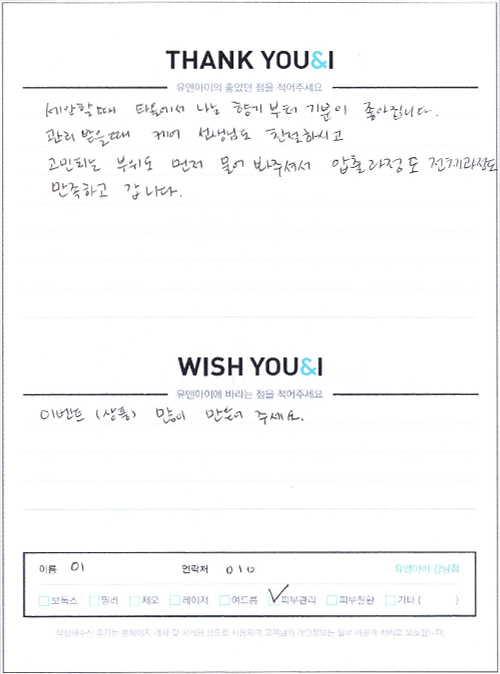 THANK YOU&I
유앤아이의 좋았던 점을 적어주세요
세안할때 타올에서 나는 향기부터 기분이 좋아집니다.
관리 받을때 케어 선생님도 친절하시고
고민되는 부위도 먼저 물어 봐주셔서 압출과정도 전체과정도
만족하고 갑니다.
WISH YOU&I
유앤아이에 바라는 점을 적어주세요
이벤트 (상품) 많이 만들어 주세요.
이름 이 연락처 010 유앤아이 강남점
보톡스 필러 제모 레이저 여드름 피부관리 피부질환 기타 ( )
작성해주신 후기는 홈페이지 게재 및 마케팅 용도로 사용되며 고객님의 개인정보는 일부 비공개 처리로 보호됩니다.